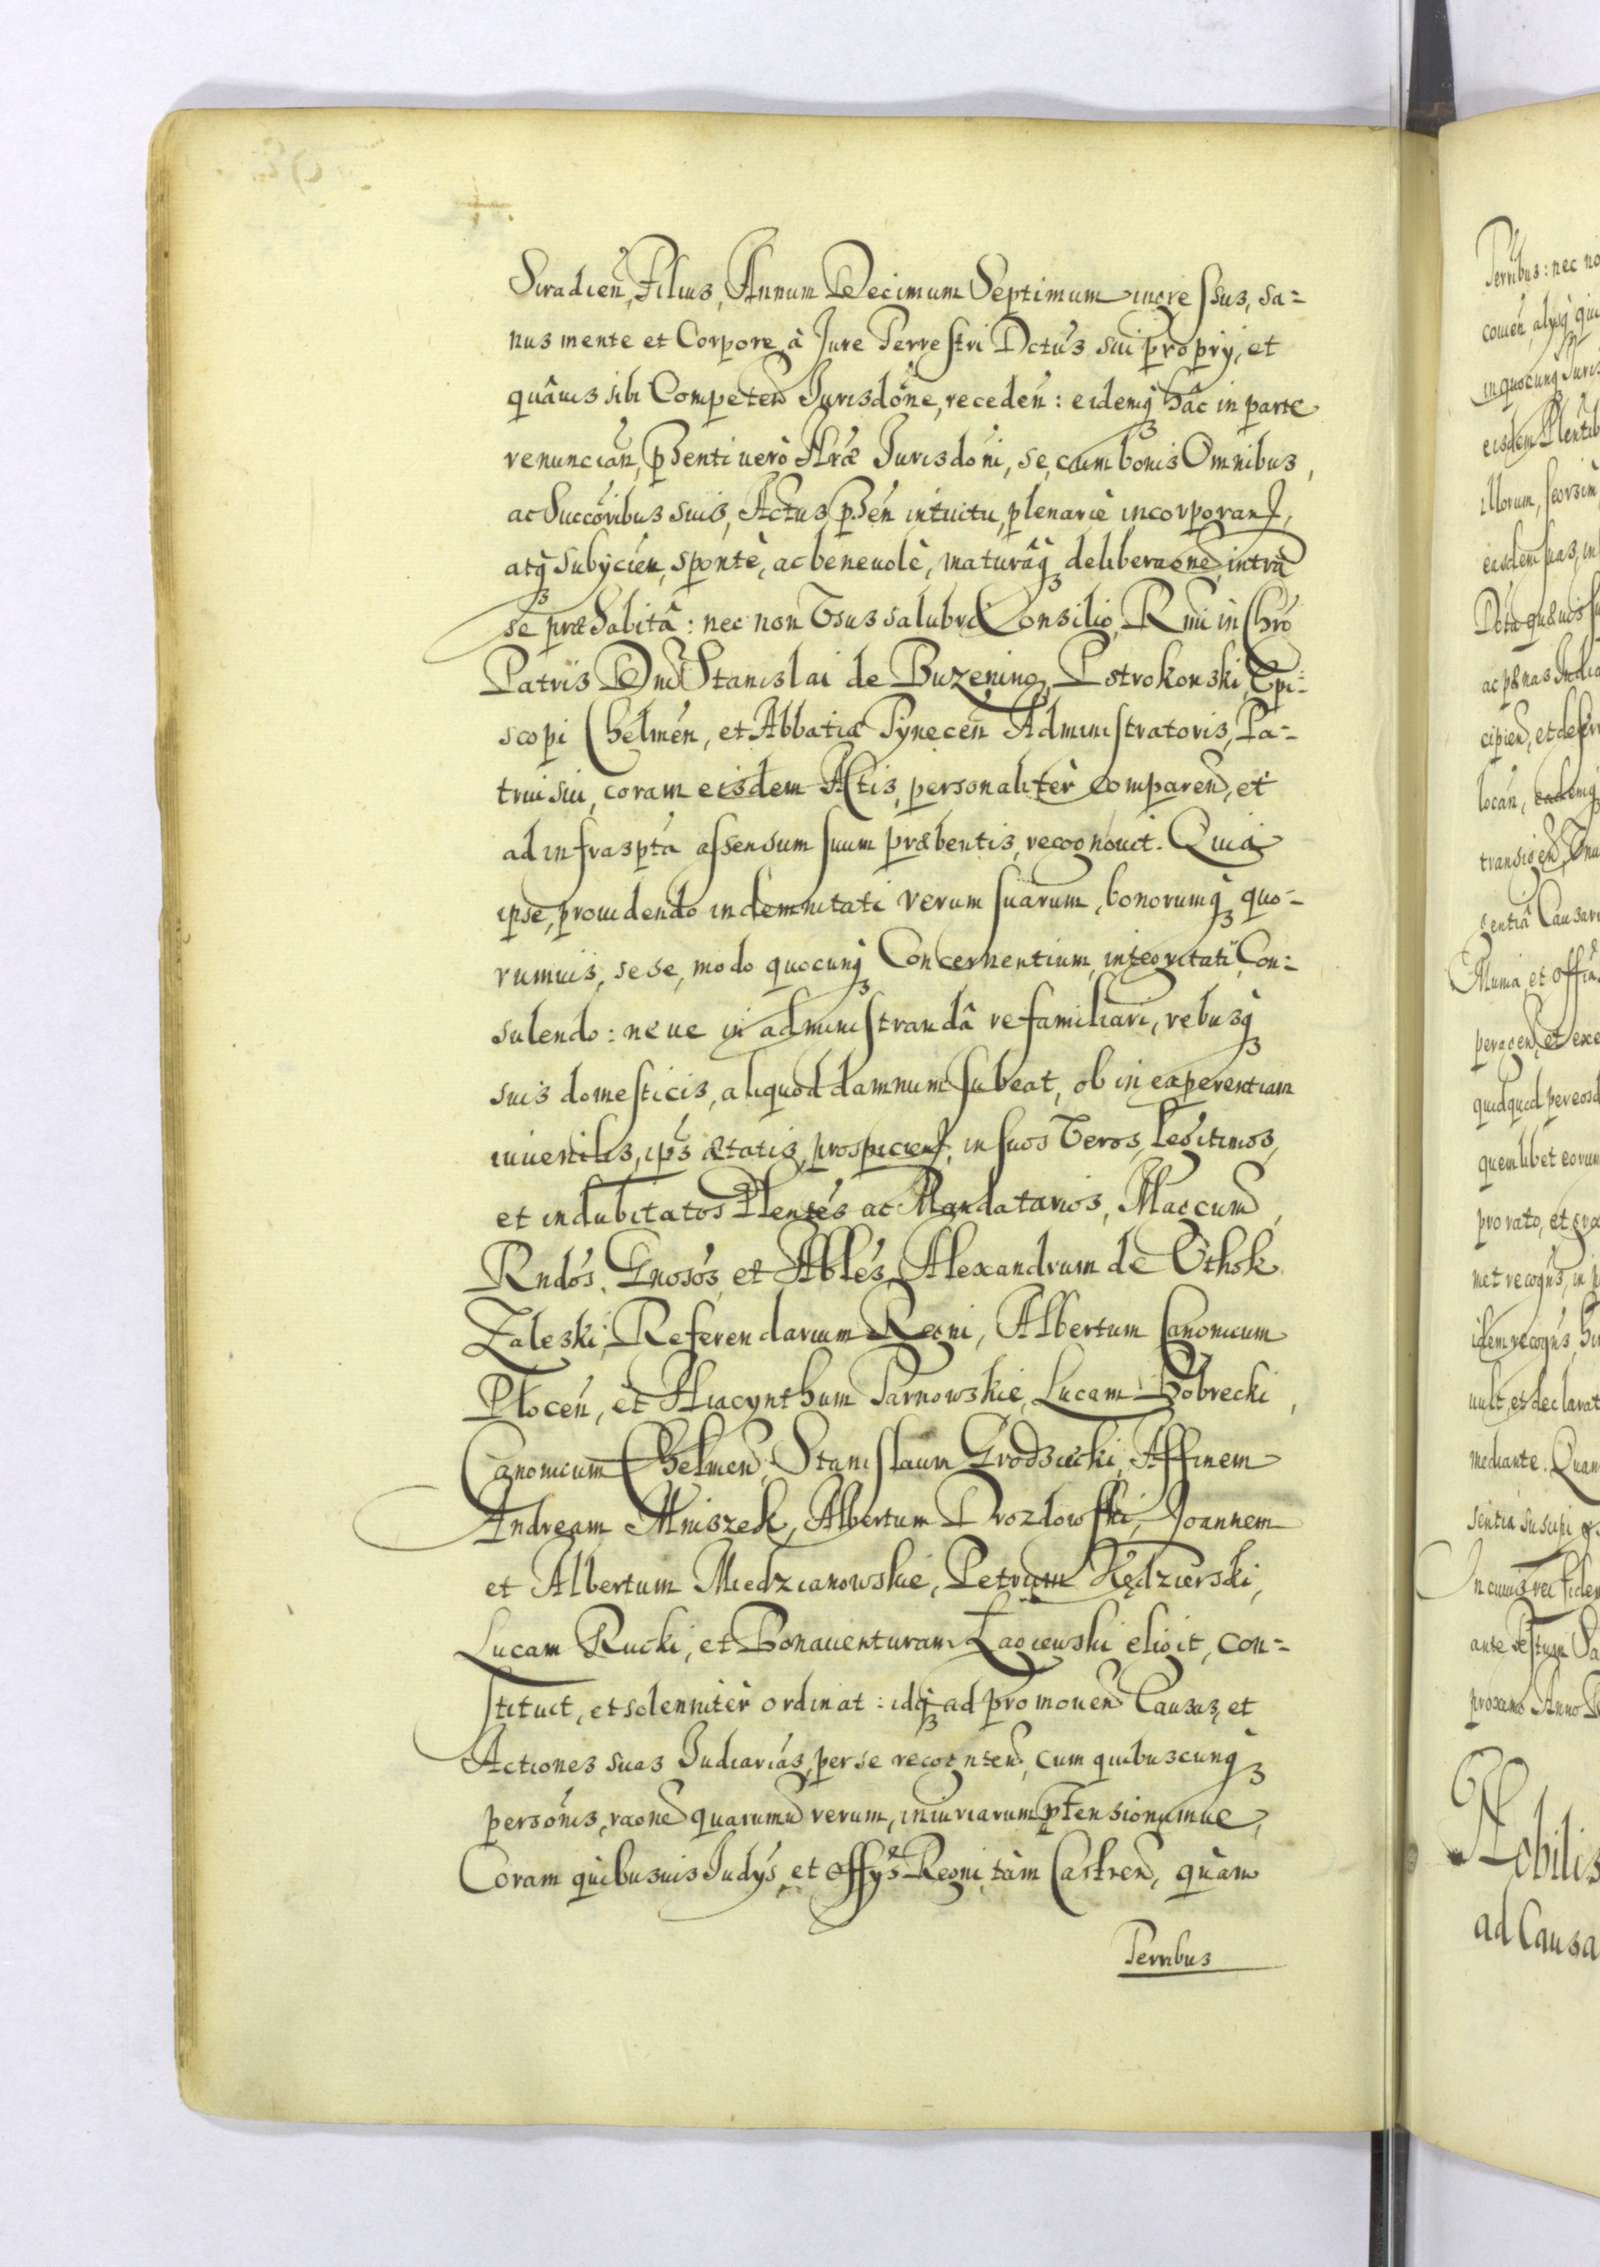 Siradień, Filius, Annum Decimum Septimum ingressus, sa-
nus mente et Corpore, à Jure Terrestri Dctús sui proprÿ, et
quâuis sibi Competeń Jurisdóne, recedeń: eidemq hâc in parte
renuncián, pńti uerò Jurisdóni, se, cum bonis Omnibus,
ac Succóribus suis, Actus pńtis intuitu, plenariè incorporań,
atq subÿcień, spontè, ac beneuolè, maturâq deliberaóne, intra
se præhabitâ: nec non Vsus salubri Consilio, Rmi in Chró
Patris Dńi Stanislai de Buzenino, Pstrokonski, Epi-
scopi Chelmeń, et Abbatiæ Tÿneceń Administratoris, Pa-
trui sui, coram eisdem Actis, personalitèr compareń, et
ad infrasptá assensum suum præbentis, recognouit. Quia
ipse, prouidendo indemnitati rerum suarum, bonorumq quo-
rumuis, sese, modo quocunq Concernentium, integritati Con-
sulendo: neue in administrandâ re familiari, rebusq
suis domesticis, aliquod damnum subeat, ob inexperientiam
iuuenilis, ipś ætatis, prospicień, in suos Veros, Legitimos,
et indubitatos Plenṕtés ac Mandatarios, Magcum,
Rndós, Gnosós, et Nblés, Alexandrum de Othok
Zaleski, Referendarium Regni, Albertum Canonicum
Płoceń, et Hiacynthum Tarnowskie, Lucam Bobrecki,
Canonicum Chelmeń, Stanislaum Grodziecki, Affinem
Andream Mniszek, Albertum Drozdowski, Joannem
et Albertum Miedzianowskie, Petrum Kędzierski,
Lucam Rucki, et Bonauenturam Łagiewski eligit, con-
stituit, et solennitèr ordinat: idq ad promouen Causas, et
Actiones suas Judiariás, per se recogńteń, cum quibuscunq
persónis, raóne quarumuis rerum, iniuriarum prætensionumue,
Coram quibusuis Judÿs, et Offÿs Regni, tàm Castreń, quàm
Terribus
Terribus: nec no
in quocunq Juris
illorum, seorsim
easdem suas, in
locań,
sentiâ Causar
Munia, et Offiá
quidquid per eosd
quemlibet eorum
pro rato, et gra
met recogńs, in
idem recogńs, hu
uult, et declarat
mediante. Quam
In cuius rei fidem
proximo Anno D
Nobilis
ad Causa